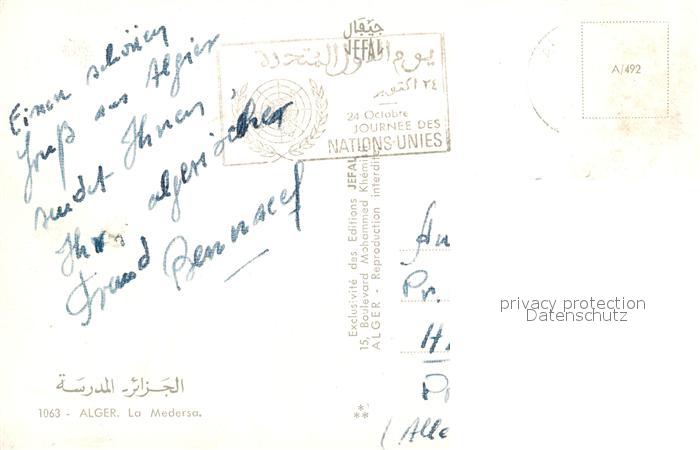 Einen schönen
Gruß aus Algier
sendet Ihnen,
Ihr algerischer
Freund Bennacef
جيفال
JEFAL
يوم الأمم المتحدة
٢٤ اكتوبر
24 Octobre
JOURNEE DES
NATIONS-UNIES
A/492
Exclusivité des Editions JEFAL
15, Boulevard Mohammed Khémisti
ALGER - Reproduction interdite
An
Pr.
H.
(Alle
privacy protection
Datenschutz
الجزائر- المدرسة
1063 - ALGER. La Medersa.